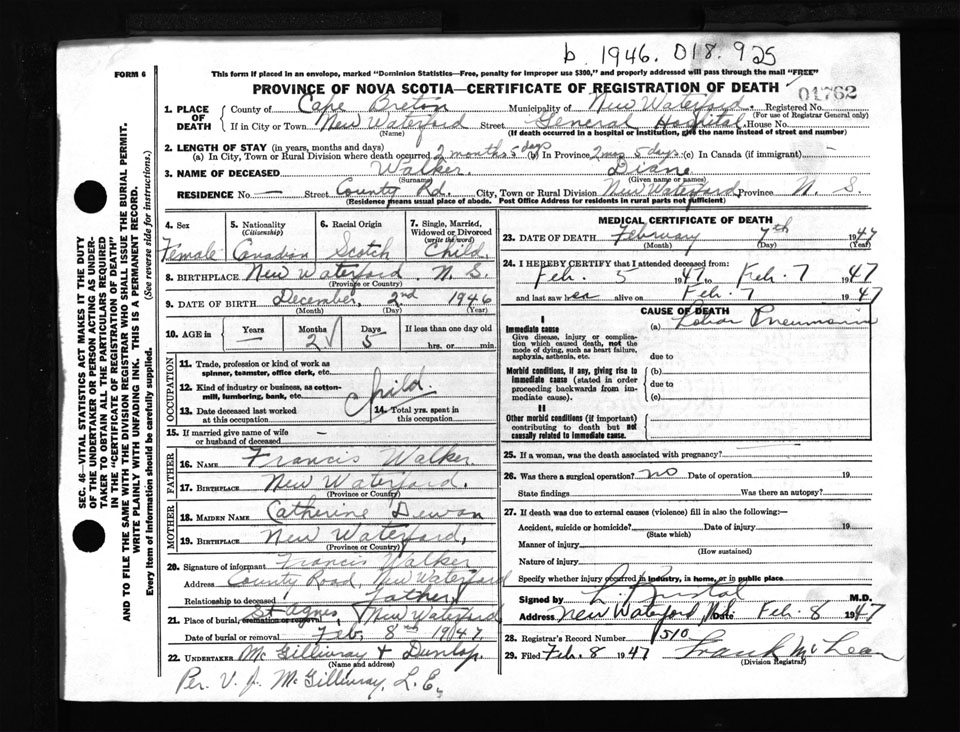 b. 1946. 018.925
FORM 6
This form if placed in an envelope, marked "Dominion Statistics—Free, penalty for improper use $300," and properly addressed will pass through the mail "FREE"
PROVINCE OF NOVA SCOTIA—CERTIFICATE OF REGISTRATION OF DEATH
01762
1. PLACE OF DEATH County of Cape Breton Municipality of New Waterford. Registered No.
(For use of Registrar General only)
If in City or Town New Waterford Street General Hospital House No.
(Name) (If death occurred in a hospital or institution, give the name instead of street and number)
2. LENGTH OF STAY (in years, months and days)
(a) In City, Town or Rural Division where death occurred 2 months 5 days (b) In Province 2 mos 5 days (c) In Canada (if immigrant) —
3. NAME OF DECEASED Walker. Diane
(Surname) (Given name or names)
RESIDENCE No. — Street County Rd. City, Town or Rural Division New Waterford, Province N. S.
(Residence means usual place of abode. Post Office Address for residents in rural parts not sufficient)
4. Sex 5. Nationality (Citizenship) 6. Racial Origin 7. Single, Married, Widowed or Divorced (write the word)
Female Canadian Scotch Child.
8. BIRTHPLACE New Waterford. N. S.
(Province or Country)
9. DATE OF BIRTH December, 2nd 1946
(Month) (Day) (Year)
10. AGE in Years Months Days If less than one day old
— 2 5 hrs. or min.
OCCUPATION
11. Trade, profession or kind of work as spinner, teamster, office clerk, etc.
12. Kind of industry or business, as cotton-mill, lumbering, bank, etc.
Child.
13. Date deceased last worked at this occupation 14. Total yrs. spent in this occupation
15. If married give name of wife or husband of deceased —
FATHER
16. NAME Francis Walker.
17. BIRTHPLACE New Waterford.
(Province or Country)
MOTHER
18. MAIDEN NAME Catherine Dewan
19. BIRTHPLACE New Waterford,
(Province or Country)
20. Signature of informant Francis Walker
Address County Road, New Waterford
Relationship to deceased Father
21. Place of burial, cremation or removal St Agnes, New Waterford
Date of burial or removal Feb, 8th 1947
22. UNDERTAKER McGillivray & Dunlap.
(Name and address)
Per. V. J. McGillivray, L. E.
MEDICAL CERTIFICATE OF DEATH
23. DATE OF DEATH February 7th 1947
(Month) (Day) (Year)
24. I HEREBY CERTIFY that I attended deceased from:
Feb. 5 1947 to Feb. 7 1947
and last saw her alive on Feb. 7 1947
CAUSE OF DEATH
I
Immediate cause (a) Lobar Pneumonia
Give disease, injury or complication which caused death, not the mode of dying, such as heart failure, asphyxia, asthenia, etc.
due to
Morbid conditions, if any, giving rise to immediate cause (stated in order proceeding backwards from immediate cause).
(b)
due to
(c)
II
Other morbid conditions (if important) contributing to death but not causally related to immediate cause.
25. If a woman, was the death associated with pregnancy?
26. Was there a surgical operation? no Date of operation 19
State findings Was there an autopsy?
27. If death was due to external causes (violence) fill in also the following:—
Accident, suicide or homicide? Date of injury 19
(State which)
Manner of injury
(How sustained)
Nature of injury
Specify whether injury occurred in industry, in home, or in public place
Signed by M.D.
Address New Waterford, Date Feb. 8 1947
28. Registrar's Record Number 510
29. Filed Feb. 8 1947 Frank McLean
(Division Registrar)
SEC. 46—VITAL STATISTICS ACT MAKES IT THE DUTY
OF THE UNDERTAKER OR PERSON ACTING AS UNDER-
TAKER TO OBTAIN ALL THE PARTICULARS REQUIRED
IN THE "CERTIFICATE OF REGISTRATION OF DEATH"
AND TO FILE THE SAME WITH THE DIVISION REGISTRAR WHO SHALL ISSUE THE BURIAL PERMIT.
WRITE PLAINLY WITH UNFADING INK. THIS IS A PERMANENT RECORD.
Every item of information should be carefully supplied. (See reverse side for instructions.)